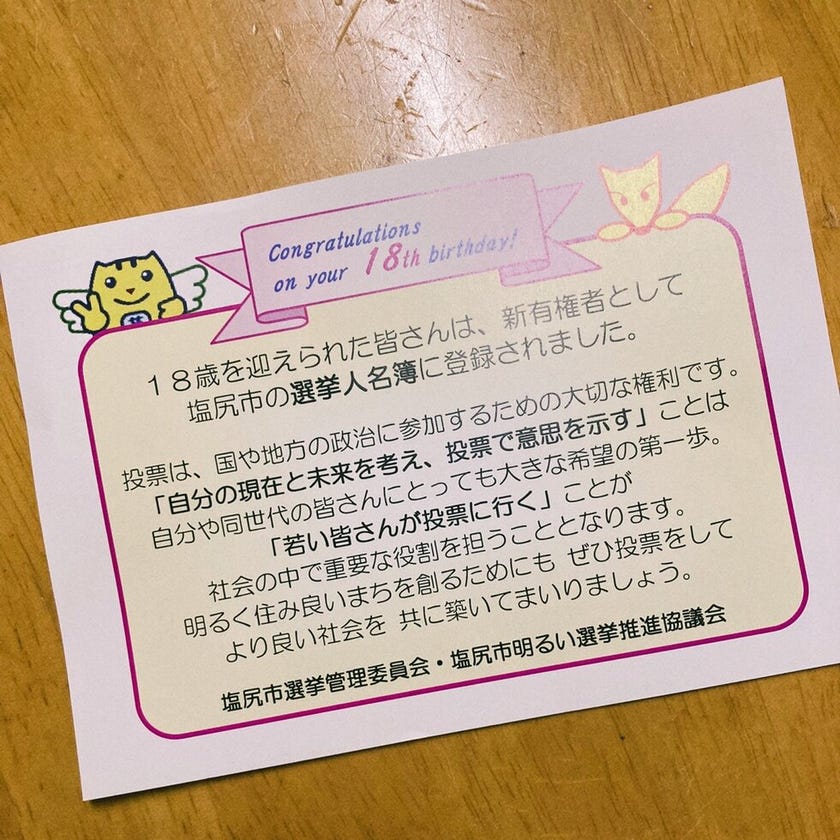 Congratulations
on your 18th birthday!
１８歳を迎えられた皆さんは、新有権者として
塩尻市の選挙人名簿に登録されました。
投票は、国や地方の政治に参加するための大切な権利です。
「自分の現在と未来を考え、投票で意思を示す」ことは
自分や同世代の皆さんにとっても大きな希望の第一歩。
「若い皆さんが投票に行く」ことが
社会の中で重要な役割を担うこととなります。
明るく住み良いまちを創るためにも ぜひ投票をして
より良い社会を 共に築いてまいりましょう。
塩尻市選挙管理委員会・塩尻市明るい選挙推進協議会